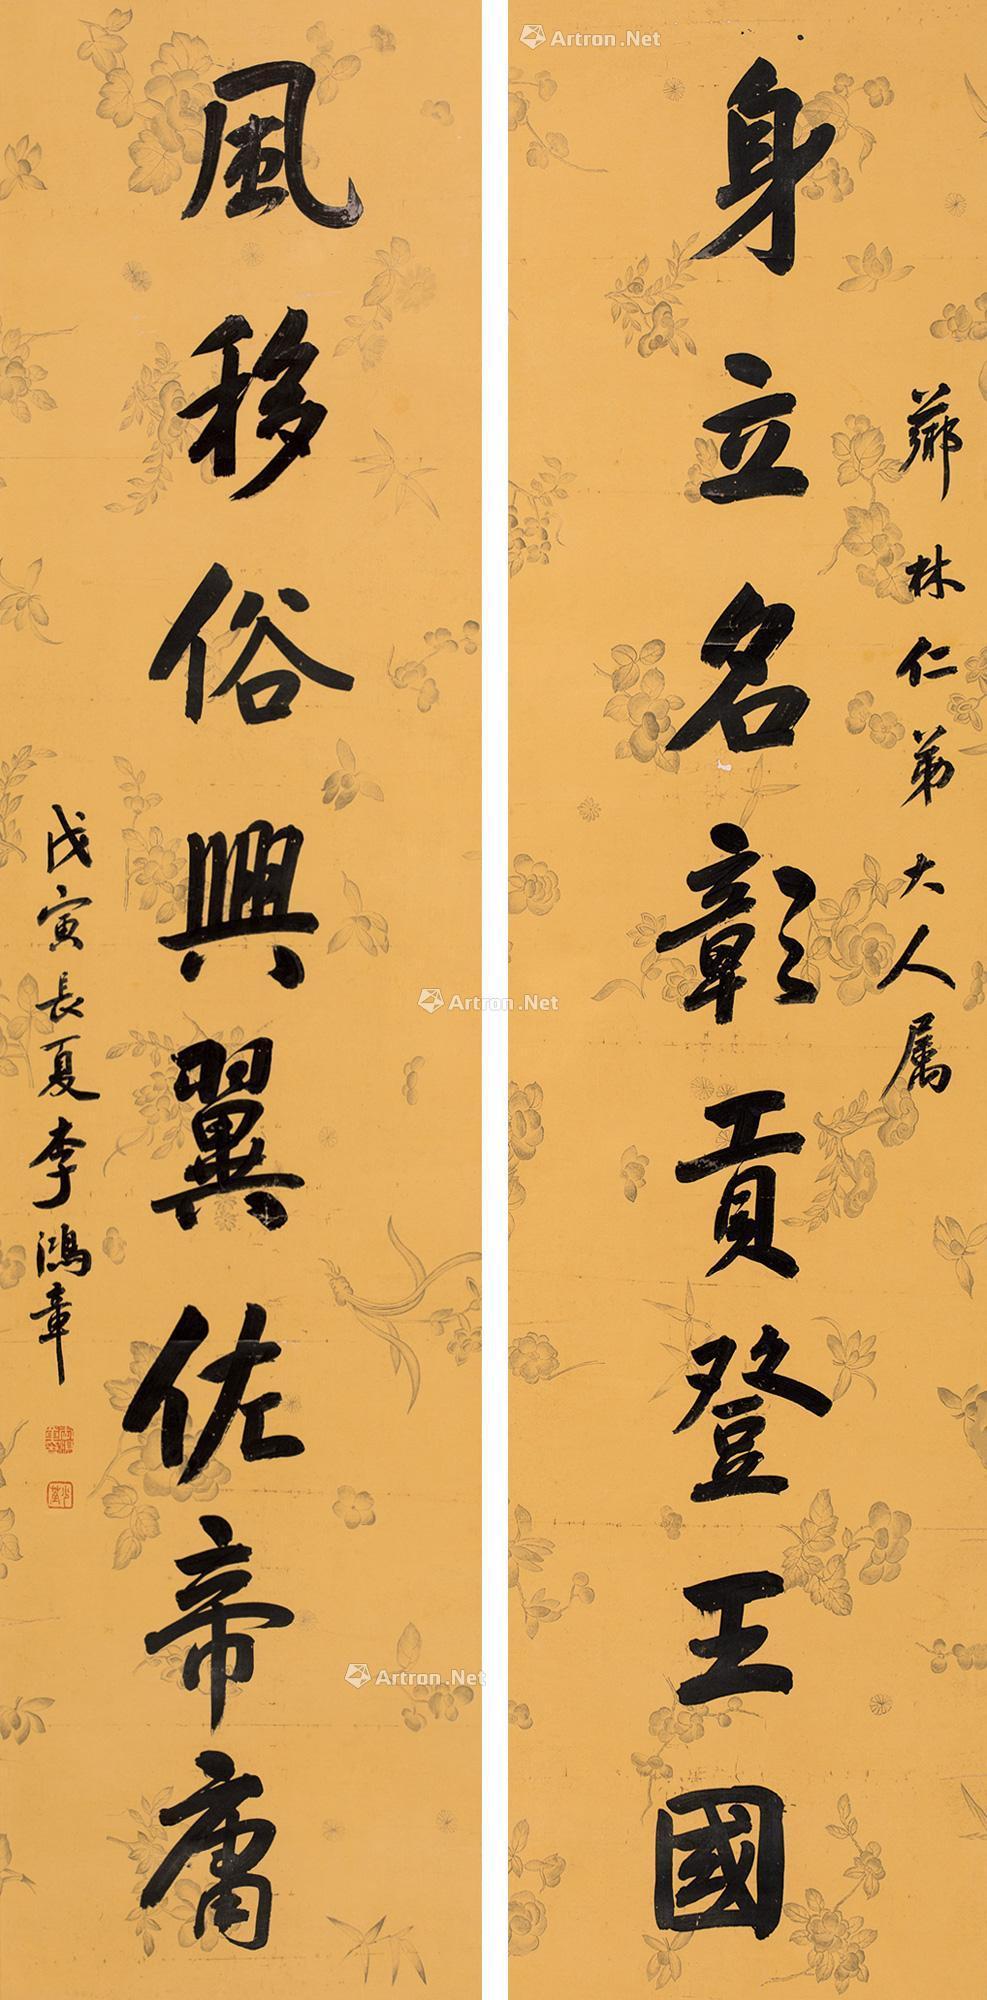 薌林仁弟大人属
身立名彰貢登王國
風移俗興翼佐帝庸
戊寅長夏李鴻章
Artron.Net
Artron.Net
Artron.Net